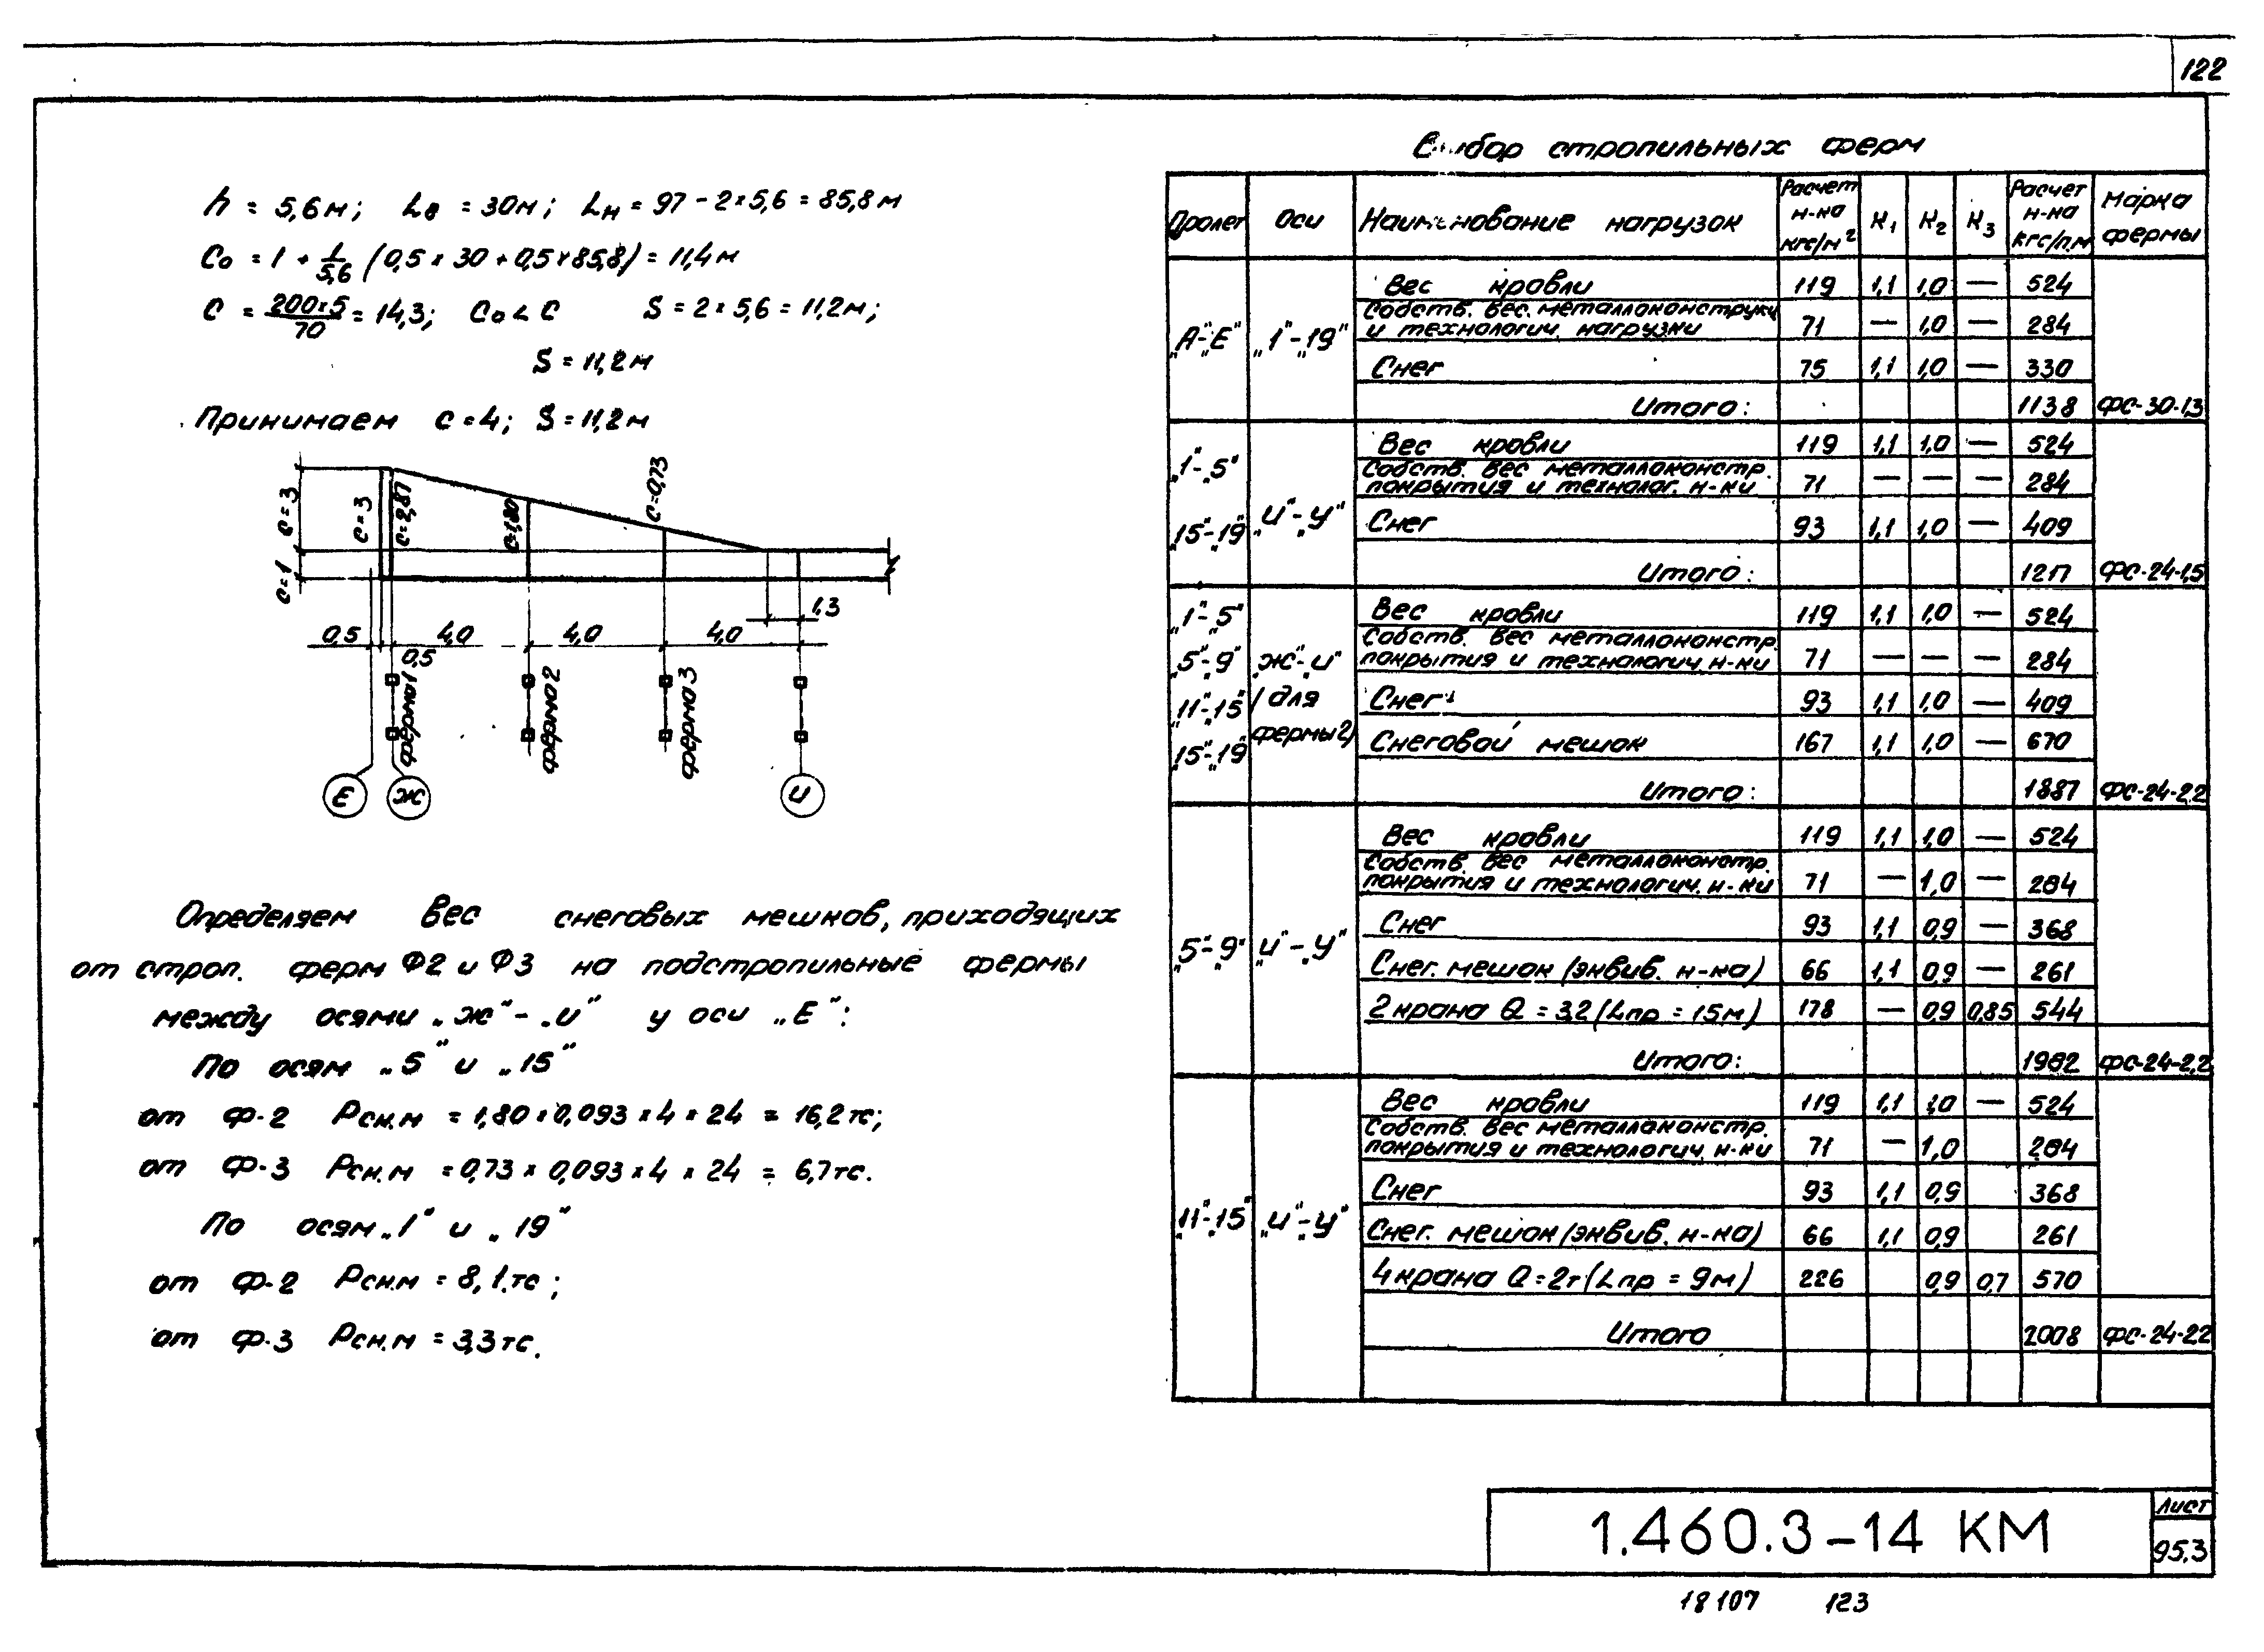 122
h = 5,6м; Lв = 30м; Lн = 97 - 2×5,6 = 85,8м
C₀ = 1 + 1/5,6 (0,5 × 30 + 0,5×85,8) = 11,4м
C = 200×5/70 = 14,3; C₀ < C S = 2×5,6 = 11,2м;
S = 11,2м
Принимаем c = 4; S = 11,2м
c=3
c=1
c=3
c=2,87
c=1,80
c=0,73
1,3
0,5 4,0 4,0 4,0
0,5
ферма1
ферма2
ферма3
Е Ж И
Определяем вес снеговых мешков, приходящих
от строп. ферм Ф2 и Ф3 на подстропильные фермы
между осями „Ж"-„И" у оси „Е":
По осям „5" и „15"
от Ф-2 Рсн.м = 1,80×0,093×4×24 = 16,2тс;
от Ф-3 Рсн.м = 0,73×0,093×4×24 = 6,7тс.
По осям „1" и „19"
от Ф-2 Рсн.м = 8,1.тс;
от Ф-3 Рсн.м = 3,3тс.
Выбор стропильных ферм
Пролет Оси Наименование нагрузок Расчет н-ка кгс/м² К₁ К₂ К₃ Расчет н-ка кгс/п.м Марка фермы
„А"-„Е" „1"-„19"
Вес кровли 119 1,1 1,0 — 524
Собств. вес. металлоконструкц
и технологич. нагрузки 71 — 1,0 — 284
Снег 75 1,1 1,0 — 330
Итого: 1138 ФС-30-1,3
„1"-„5"
„15"-„19" „И"-„У"
Вес кровли 119 1,1 1,0 — 524
Собств. вес металлоконстр.
покрытия и технолог. н-ки 71 — — — 284
Снег 93 1,1 1,0 — 409
Итого: 1217 ФС-24-1,5
„1"-„5"
„5"-„9" „Ж"-„И"
„11"-„15" (для
„15"-„19" фермы2)
Вес кровли 119 1,1 1,0 — 524
Собств. вес металлоконстр.
покрытия и технологич. н-ки 71 — — — 284
Снег 93 1,1 1,0 — 409
Снеговой мешок 167 1,1 1,0 — 670
Итого: 1887 ФС-24-2,2
„5"-„9" „И"-„У"
Вес кровли 119 1,1 1,0 — 524
Собств. вес металлоконстр.
покрытия и технологич. н-ки 71 — 1,0 — 284
Снег 93 1,1 0,9 — 368
Снег. мешок (эквив. н-ка) 66 1,1 0,9 — 261
2 крана Q = 3,2 (Lпр = 15м) 178 — 0,9 0,85 544
Итого: 1982 ФС-24-2,2
„11"-„15" „И"-„У"
Вес кровли 119 1,1 1,0 — 524
Собств. вес металлоконстр.
покрытия и технологич. н-ки 71 — 1,0 284
Снег 93 1,1 0,9 368
Снег. мешок (эквив. н-ка) 66 1,1 0,9 261
4 крана Q = 2т (Lпр = 9м) 226 0,9 0,7 570
Итого 2008 ФС-24-2.2
1.460.3-14 КМ
Лист
95.3
18107 123